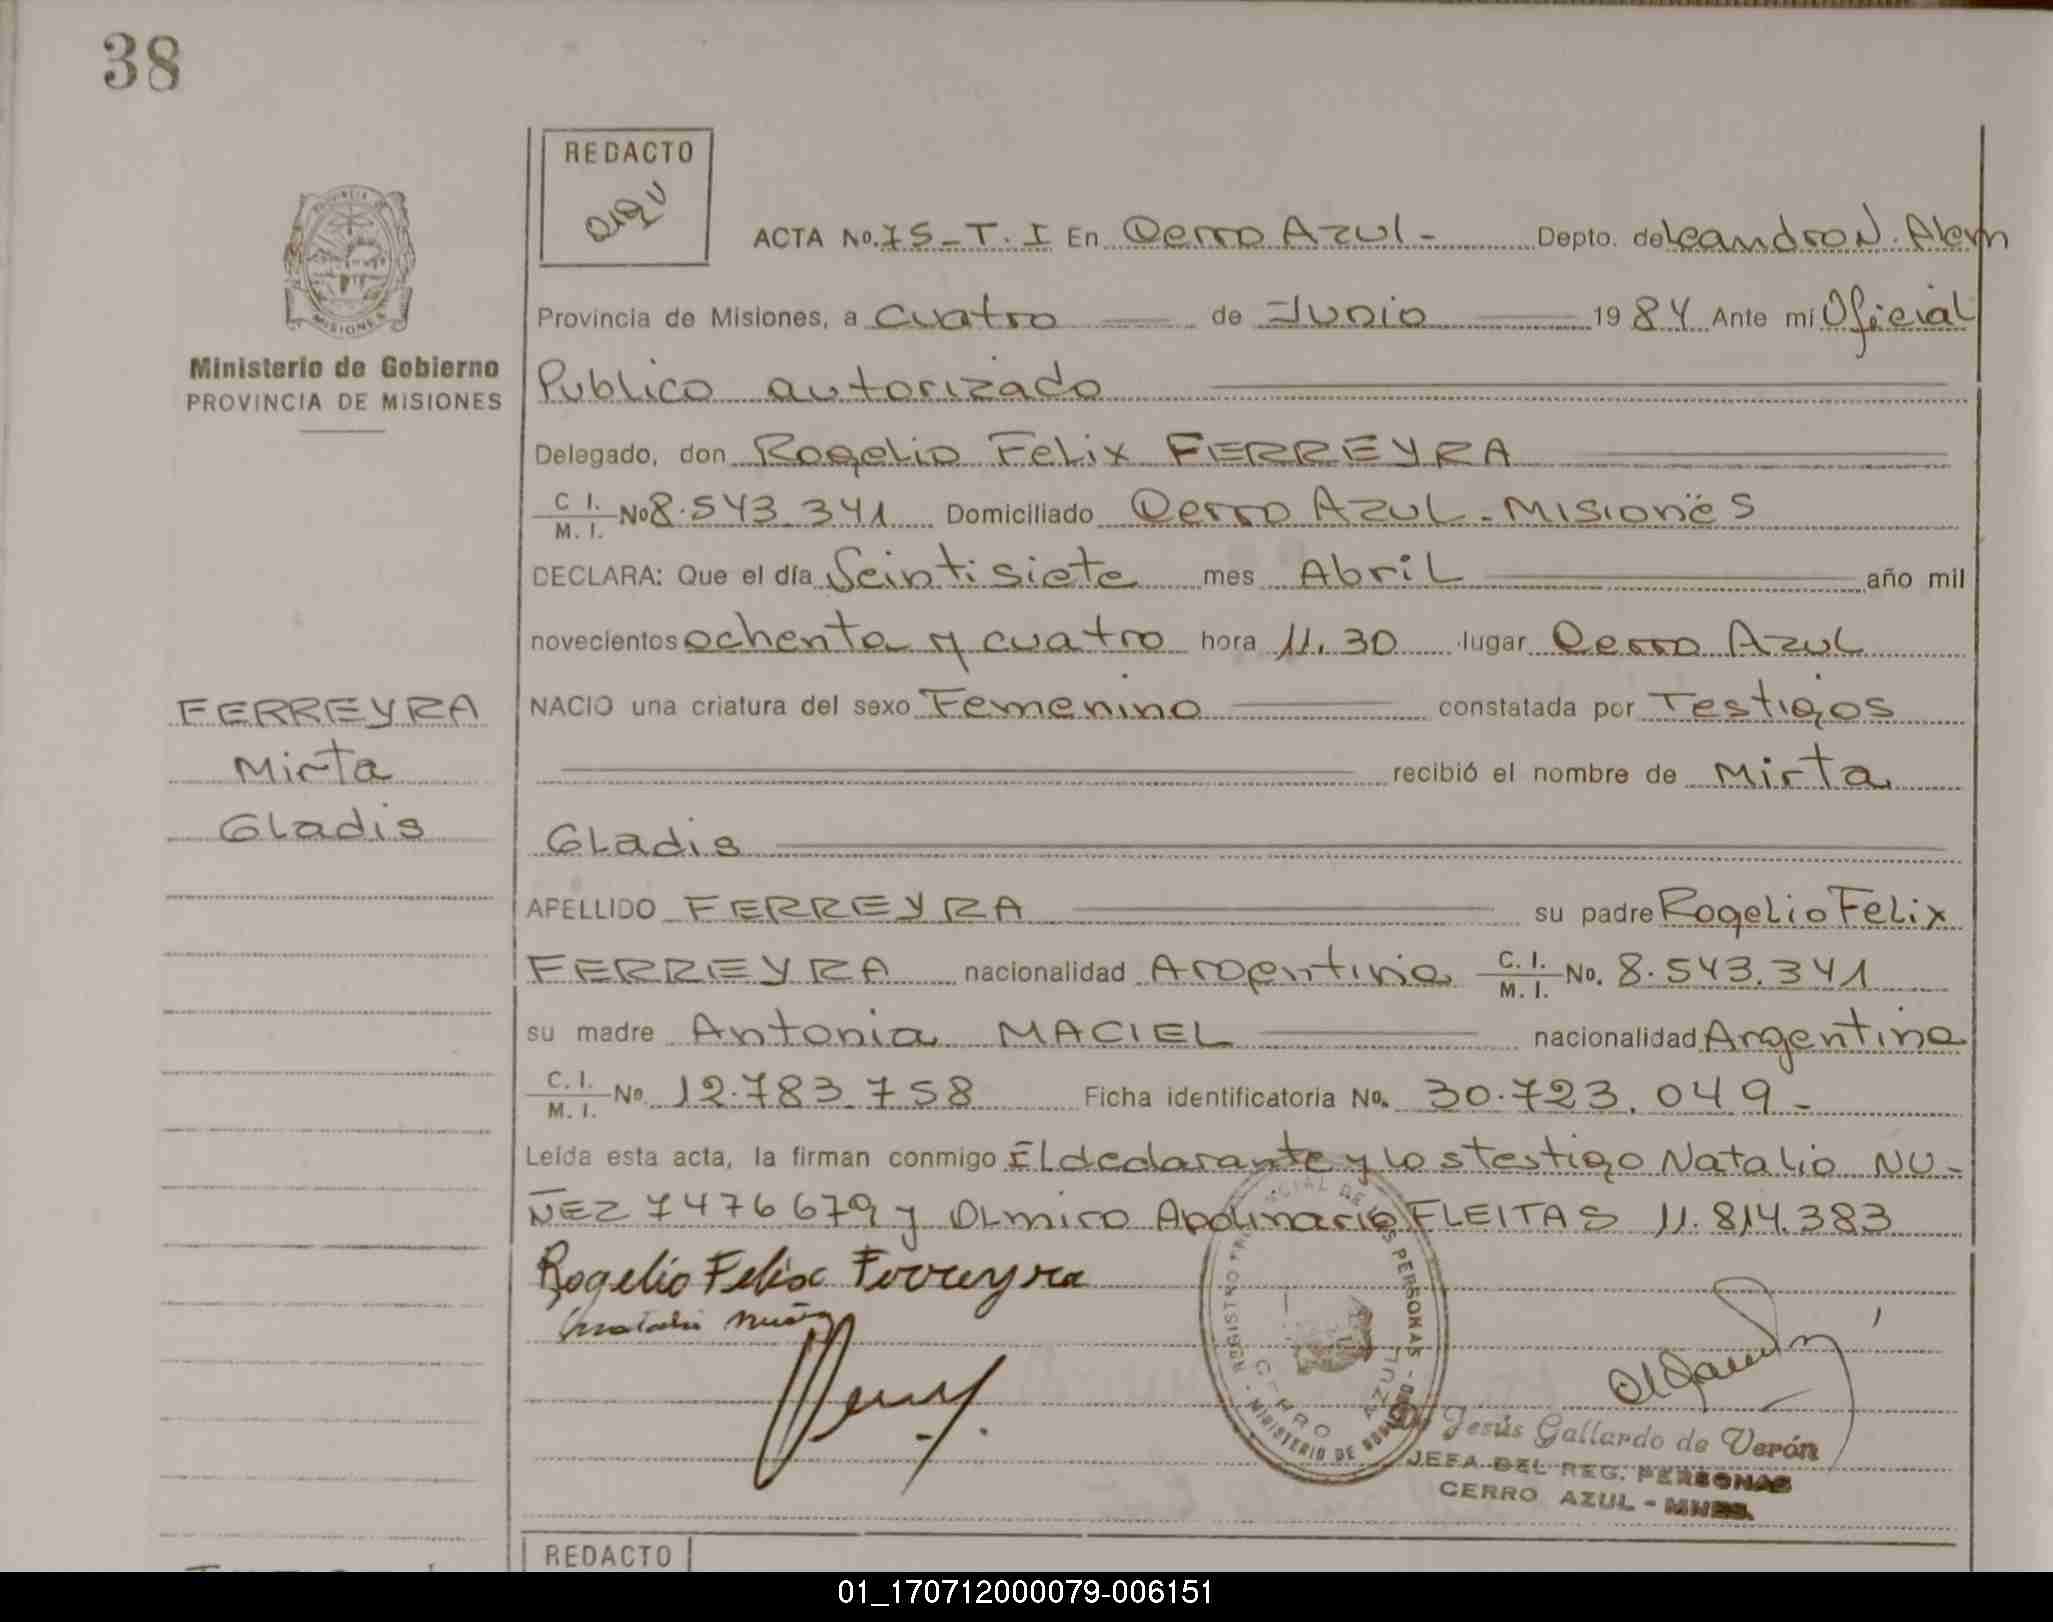 38
REDACTO
ACTA No. 75-T.I En Cerro Azul- Depto. de Leandro N. Alem
Provincia de Misiones, a cuatro de Junio 1984 Ante mí Oficial
Publico autorizado
Ministerio de Gobierno
PROVINCIA DE MISIONES
Delegado, don Rogelio Felix FERREYRA
C I. M. I. No 8.543.341 Domiciliado Cerro Azul-Misiones
DECLARA: Que el día Veintisiete mes Abril año mil
novecientos ochenta y cuatro hora 11.30 lugar Cerro Azul
FERREYRA
Mirta
Gladis
NACIO una criatura del sexo Femenino constatada por Testigos
recibió el nombre de Mirta
Gladis
APELLIDO FERREYRA su padre Rogelio Felix
FERREYRA nacionalidad Argentina C. I. M. I. No. 8.543.341
su madre Antonia MACIEL nacionalidad Argentina
C. I. M. I. No 12.783.758 Ficha identificatoria No. 30.723.049-
Leída esta acta, la firman conmigo El declarante y los testigo Natalio NU-
ÑEZ 7476679 y Olmiro Apolinario FLEITAS 11.814.383
Rogelio Felix Ferreyra
REGISTRO PROVINCIAL DE LAS PERSONAS - MINISTERIO DE GOBIERNO
CERRO AZUL
Jesús Gallardo de Verón
JEFA DEL REG. PERSONAS
CERRO AZUL - MNES.
REDACTO
01_170712000079-006151